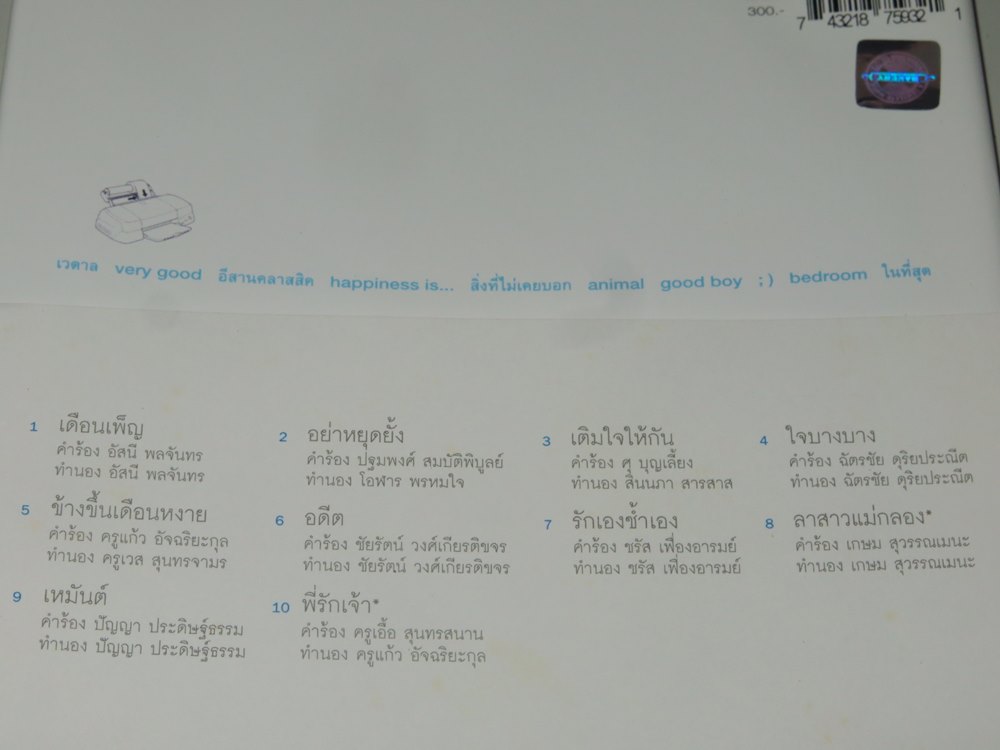 300.-
7 43218 75932 1
BAKERY
เวตาล very good อีสานคลาสสิค happiness is... สิ่งที่ไม่เคยบอก animal good boy ;) bedroom ในที่สุด
1 เดือนเพ็ญ
คำร้อง อัสนี พลจันทร
ทำนอง อัสนี พลจันทร
2 อย่าหยุดยั้ง
คำร้อง ปฐมพงศ์ สมบัติพิบูลย์
ทำนอง โอฬาร พรหมใจ
3 เติมใจให้กัน
คำร้อง ศุ บุญเลี้ยง
ทำนอง สินนภา สารสาส
4 ใจบางบาง
คำร้อง ฉัตรชัย ดุริยประณีต
ทำนอง ฉัตรชัย ดุริยประณีต
5 ข้างขึ้นเดือนหงาย
คำร้อง ครูแก้ว อัจฉริยะกุล
ทำนอง ครูเวส สุนทรจามร
6 อดีต
คำร้อง ชัยรัตน์ วงศ์เกียรติขจร
ทำนอง ชัยรัตน์ วงศ์เกียรติขจร
7 รักเองช้ำเอง
คำร้อง ชรัส เฟื่องอารมย์
ทำนอง ชรัส เฟื่องอารมย์
8 ลาสาวแม่กลอง*
คำร้อง เกษม สุวรรณเมนะ
ทำนอง เกษม สุวรรณเมนะ
9 เหมันต์
คำร้อง ปัญญา ประดิษฐ์ธรรม
ทำนอง ปัญญา ประดิษฐ์ธรรม
10 พี่รักเจ้า*
คำร้อง ครูเอื้อ สุนทรสนาน
ทำนอง ครูแก้ว อัจฉริยะกุล